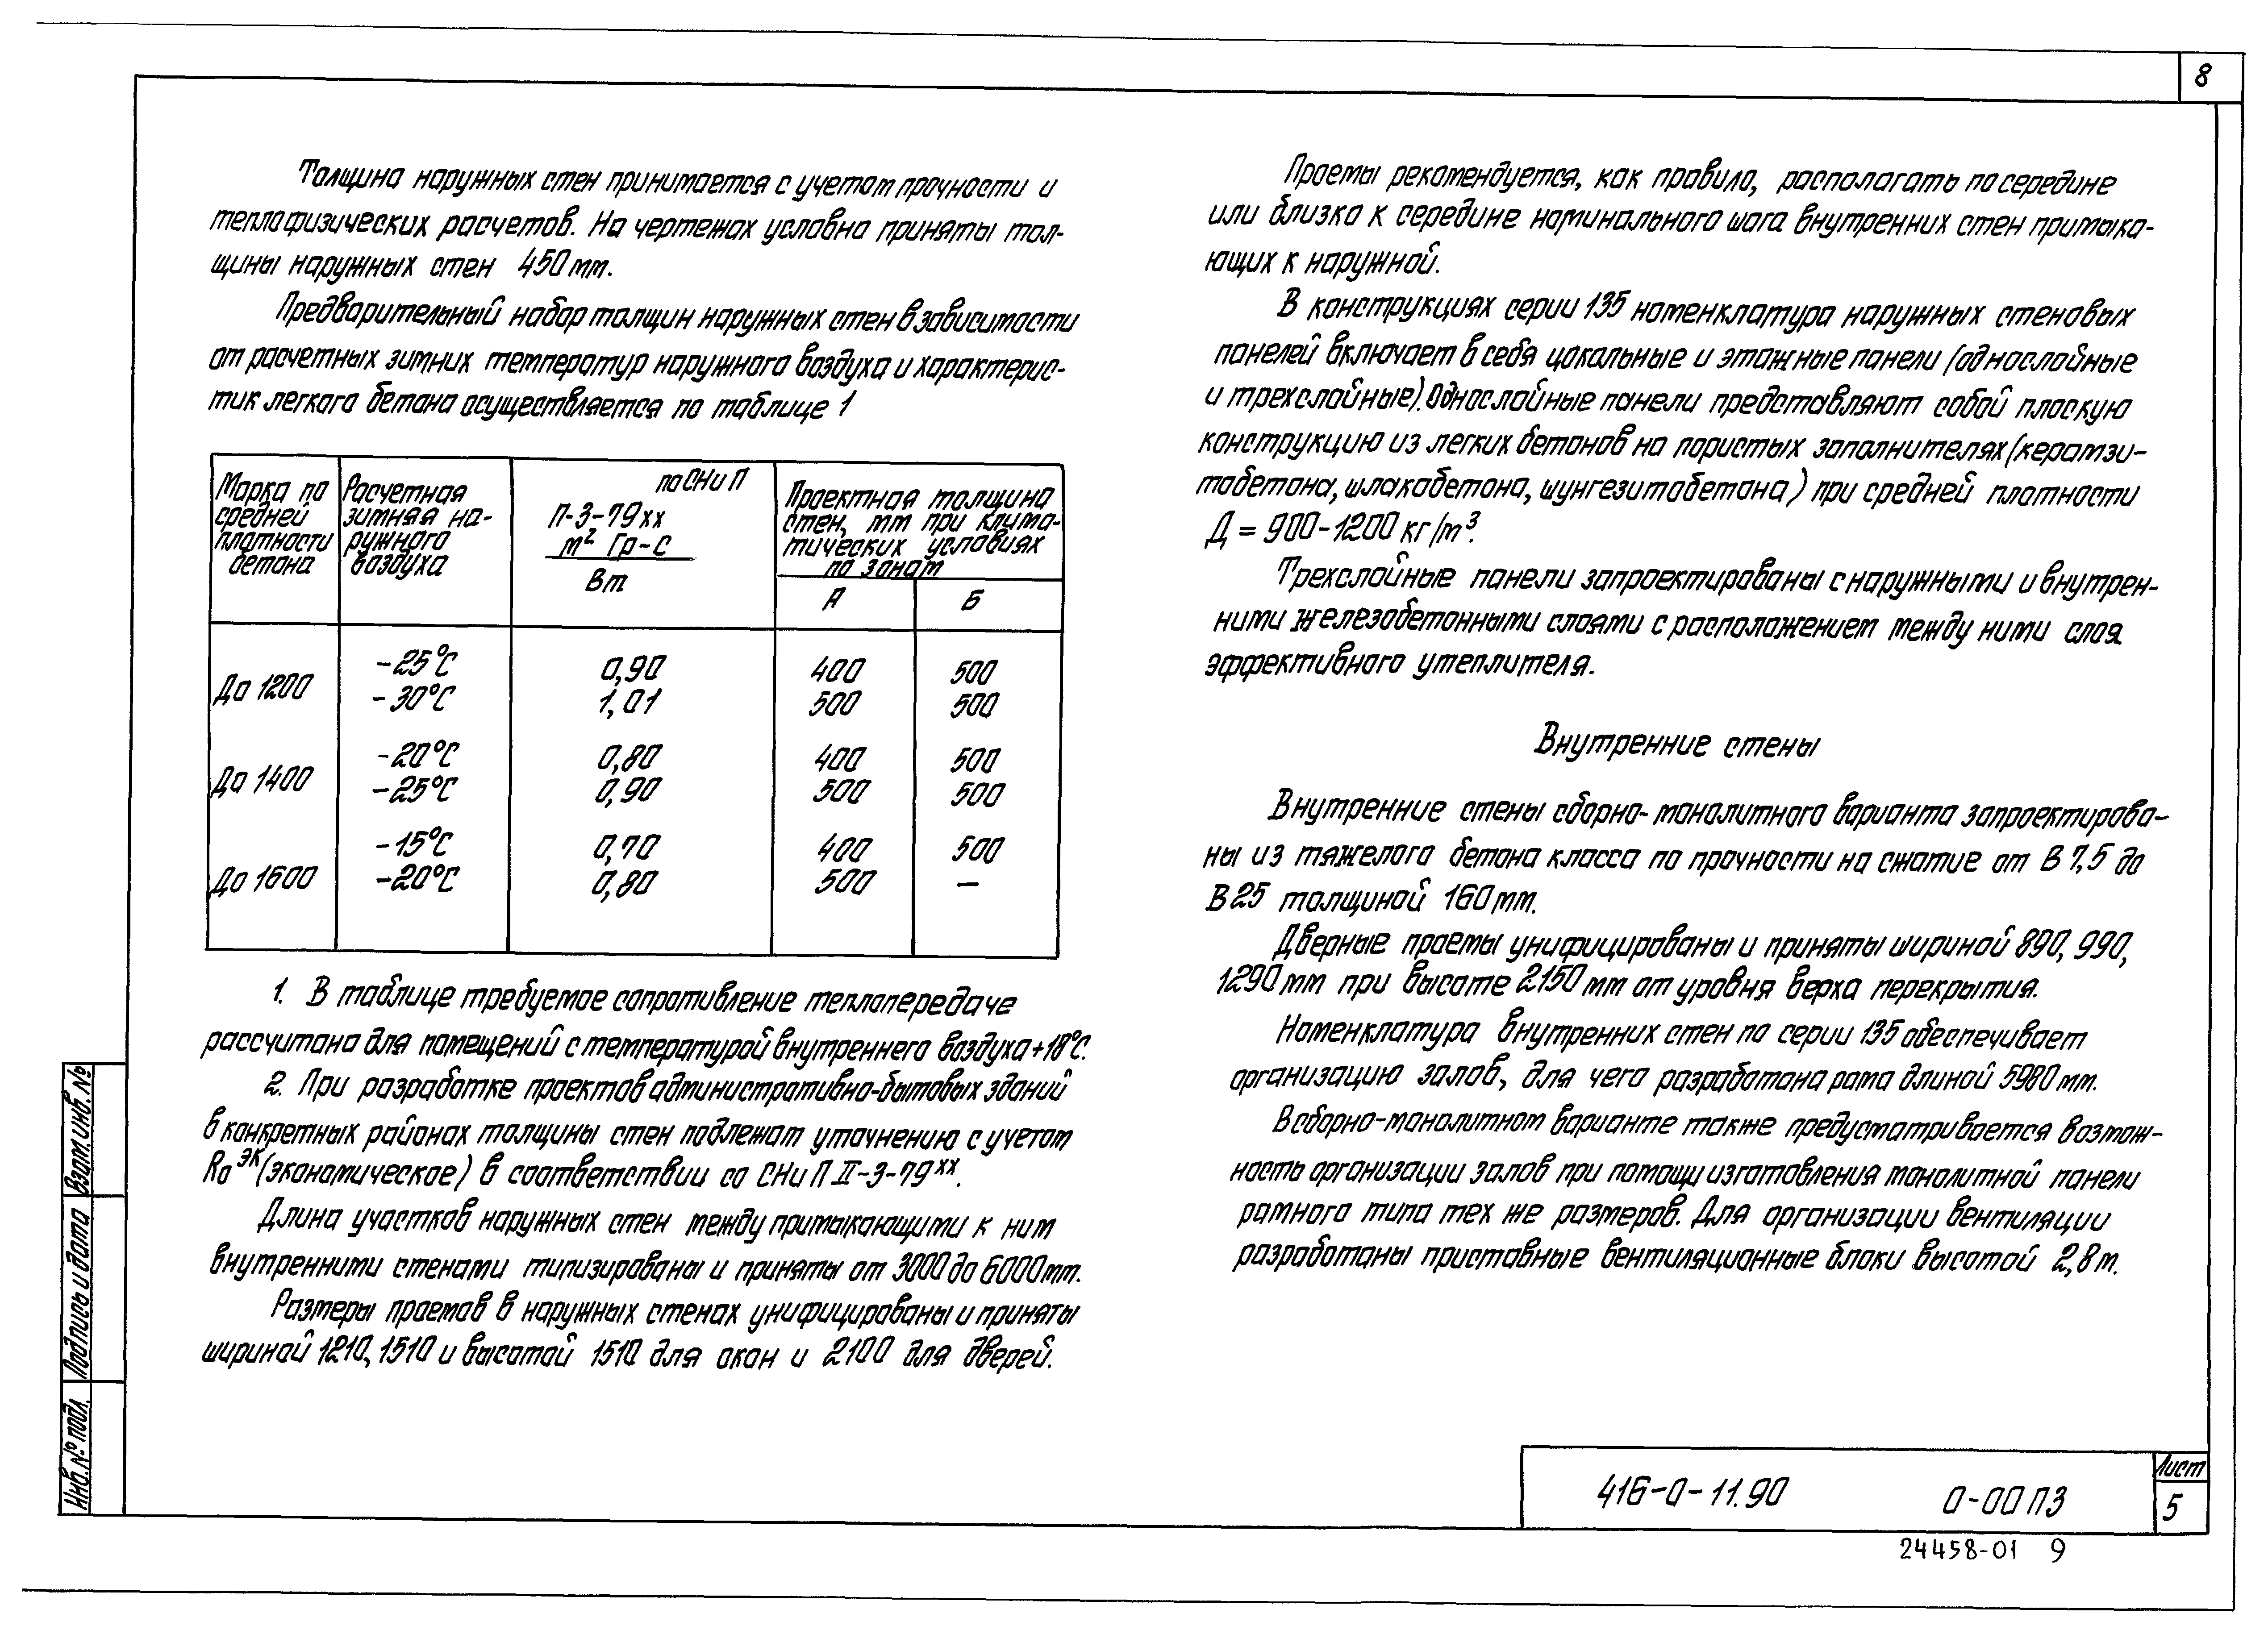 8
Толщина наружных стен принимается с учетом прочности и
теплофизических расчетов. На чертежах условно приняты тол-
щины наружных стен 450 мм.
Предварительный набор толщин наружных стен в зависимости
от расчетных зимних температур наружного воздуха и характерис-
тик легкого бетона осуществляется по таблице 1
Марка по средней плотности бетона
Расчетная зимняя на-ружного воздуха
по СНиП
П-3-79хх
м² Гр-с
Вт
Проектная толщина
стен, мм при клима-
тических условиях
по зонам
А Б
До 1200
-25°С 0,90 400 500
-30°С 1,01 500 500
До 1400
-20°С 0,80 400 500
-25°С 0,90 500 500
До 1600
-15°С 0,70 400 500
-20°С 0,80 500 —
1. В таблице требуемое сопротивление теплопередаче
рассчитано для помещений с температурой внутреннего воздуха +18°С.
2. При разработке проектов административно-бытовых зданий
в конкретных районах толщины стен подлежат уточнению с учетом
Rо эк (экономическое) в соответствии со СНиП II-3-79хх.
Длина участков наружных стен между примыкающими к ним
внутренними стенами типизированы и приняты от 3000 до 6000 мм.
Размеры проемов в наружных стенах унифицированы и приняты
шириной 1210, 1510 и высотой 1510 для окон и 2100 для дверей.
Проемы рекомендуется, как правило, располагать по середине
или близко к середине номинального шага внутренних стен примыка-
ющих к наружной.
В конструкциях серии 135 номенклатура наружных стеновых
панелей включает в себя цокольные и этажные панели (однослойные
и трехслойные). Однослойные панели представляют собой плоскую
конструкцию из легких бетонов на пористых заполнителях (керамзи-
тобетона, шлакобетона, шунгезитобетона) при средней плотности
Д = 900-1200 кг/м³.
Трехслойные панели запроектированы с наружными и внутрен-
ними железобетонными слоями с расположением между ними слоя
эффективного утеплителя.
Внутренние стены
Внутренние стены сборно-монолитного варианта запроектирова-
ны из тяжелого бетона класса по прочности на сжатие от В 7,5 до
В 25 толщиной 160 мм.
Дверные проемы унифицированы и приняты шириной 890, 990,
1290 мм при высоте 2150 мм от уровня верха перекрытия.
Номенклатура внутренних стен по серии 135 обеспечивает
организацию залов, для чего разработана рама длиной 5980 мм.
В сборно-монолитном варианте также предусматривается возмож-
ность организации залов при помощи изготовления монолитной панели
рамного типа тех же размеров. Для организации вентиляции
разработаны приставные вентиляционные блоки высотой 2,8 м.
Инв. № подл. Подпись и дата Взам. инв. №
416-0-11.90 0-00 ПЗ
Лист
5
24458-01 9